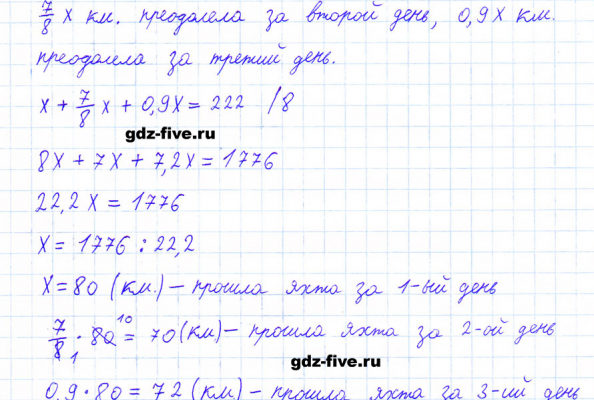 7/8 x км. преодолела за второй день, 0,9x км.
преодолела за третий день.
x + 7/8 x + 0,9x = 222 /8
gdz-five.ru
8x + 7x + 7,2x = 1776
22,2 x = 1776
x = 1776 : 22,2
x = 80 (км.) – прошла яхта за 1-ый день
7/8 1 · 80 10 = 70 (км) – прошла яхта за 2-ой день
gdz-five.ru
0,9 · 80 = 72 (км) – прошла яхта за 3-ий день